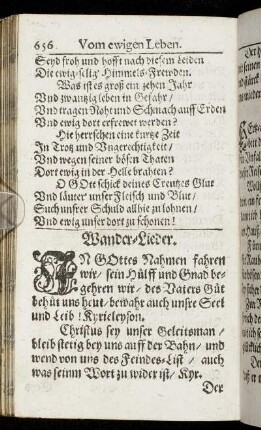 656. Vom ewigen Leben.
Seyd froh und hofft nach diesem Leiden
Die ewig-selig Himmels-Frewden.
Was ist es groß ein zehen Jahr
Vnd zwantzig leben in Gefahr /
Vnd tragen Noht und Schmach auff Erden
Vnd ewig dort erfrewet werden?
Hie herrschen eine kurtze Zeit
In Trotz und Vngerechtigkeit /
Vnd wegen seiner bösen Thaten
Dort ewig in der Helle brahten?
O GOtt schick deines Creutzes Glut
Vnd läuter unser Fleisch und Blut /
Such unsrer Schuld allhie zu lohnen /
Vnd ewig unser dort zu schonen!
Wander-Lieder.
IN GOttes Nahmen fahren
wir / sein Hülff und Gnad be-
gehren wir / des Vaters Güt
behüt uns heut / bewahr auch unsre Seel
und Leib! Kyrieleyson.
Christus sey unser Geleitsman /
bleib stetig bey uns auff der Bahn / und
wend von uns des Feindes-List / auch
was seinm Wort zu wider ist / Kyr.
Der